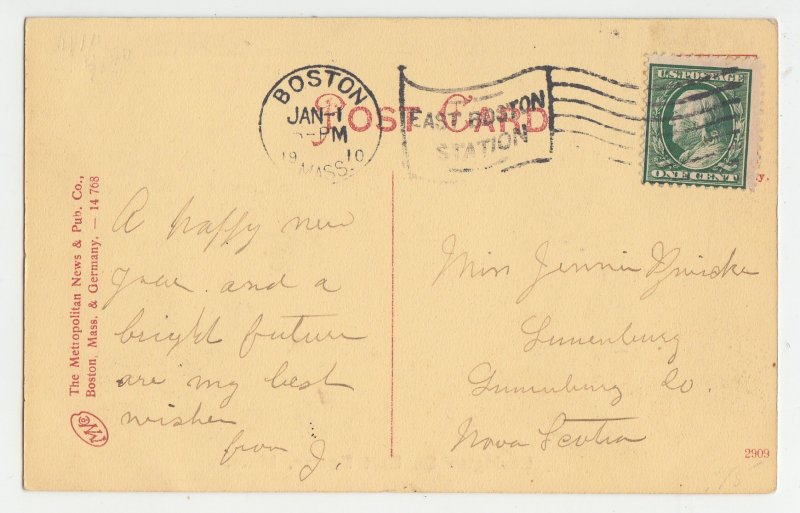 BOSTON
JAN-1
PM
19 10
MASS.
EAST BOSTON
STATION
POST CARD
U.S. POSTAGE
ONE CENT
The Metropolitan News & Pub. Co.,
Boston, Mass. & Germany. — 14 768
A happy new
year and a
bright future
are my best
wishes
from J.
Miss Jennie
Lunenburg
Lunenburg Co.
Nova Scotia
2909